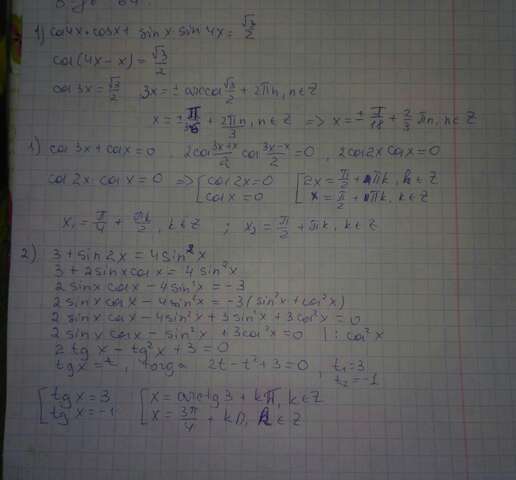 1) cos4x·cosx + sinx·sin4x = √3/2
cos(4x-x) = √3/2
cos3x = √3/2 3x = ± arccos √3/2 + 2πn, n∈Z
x = ± π/18 + 2πn/3, n∈Z => x = ± π/18 + 2/3 πn, n∈Z
1) cos3x + cosx = 0, 2cos (3x+x)/2 cos (3x-x)/2 = 0, 2cos2x cosx = 0
cos2x·cosx = 0 => [cos2x = 0 [2x = π/2 + πk, k∈Z
cosx = 0 x = π/2 + πk, k∈Z
x₁ = π/4 + πk/2, k∈Z ; x₂ = π/2 + πk, k∈Z
2) 3 + sin2x = 4sin²x
3 + 2sinxcosx = 4sin²x
2sinxcosx - 4sin²x = -3
2sinxcosx - 4sin²x = -3(sin²x + cos²x)
2sinxcosx - 4sin²x + 3sin²x + 3cos²x = 0
2sinxcosx - sin²x + 3cos²x = 0 | : cos²x
2tgx - tg²x + 3 = 0
tgx = t, тогда 2t - t² + 3 = 0, t₁ = 3
t₂ = -1
[tgx = 3 [x = arctg3 + kπ, k∈Z
tgx = -1 x = 3π/4 + kπ, k∈Z